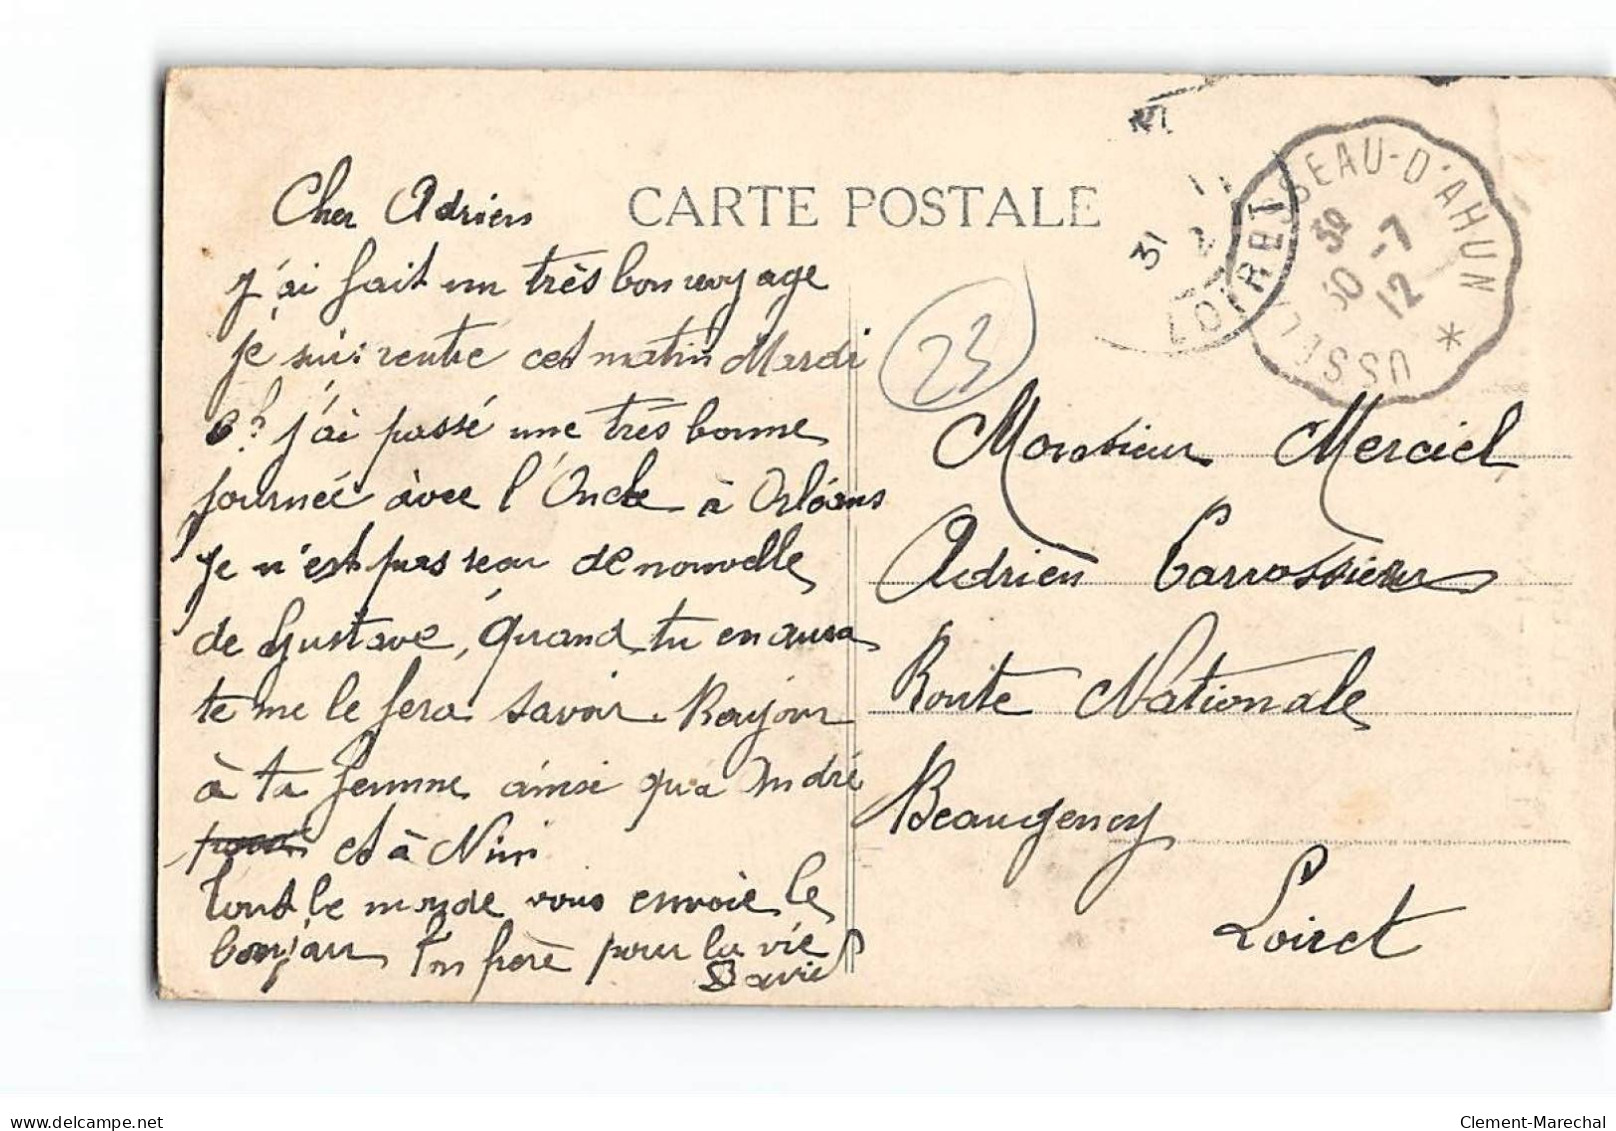 CARTE POSTALE
Cher Adrien
J'ai fait un très bon voyage
je suis rentré cet matin Mardi
6h j'ai passé une très bonne
journée avec l'Oncle à Orléans
Je n'est pas reçu de nouvelle
de Gustave, quand tu en aura
te me le fera savoir. Bonjour
à ta femme ainsi qu'à André
et à Nini
tout le monde vous envoie le
bonjour Ton frère pour la vie
23
Monsieur Merciel
Adrien Carrossier
Route Nationale
Beaugency
Loiret
BUSSEAU-D'AHUN
USSEL
30 -7
12
31
LOIRET
delcampe.net
Clement-Marechal